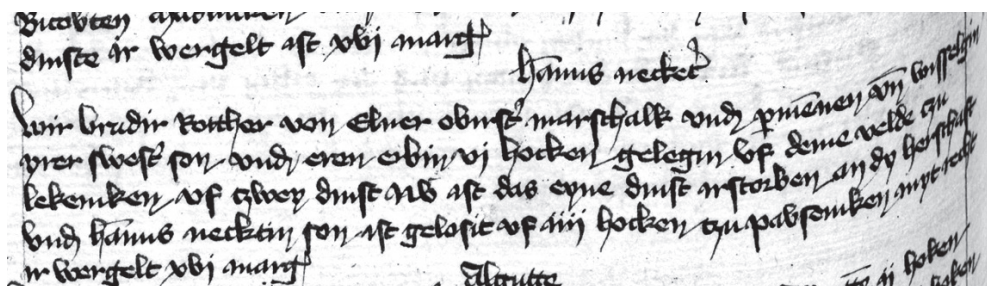 dinste ir wergelt ist xvi marg
hannus necket
Wir brudir Rotther von Elner obirster marschalk vnd permenen vnd wisselgin
yrer swester son vnd eren erbin vi hocken gelegin vf deme velde czu
lekeniken vf czwey dinst Nw ist das eyne dinst irstorben an dy herschaft
vnd hannus necktin son ist gelosit vf iiii hocken czu pabseniken myt recht
ir wergelt xvi marg
Algutte
hoken
hoken